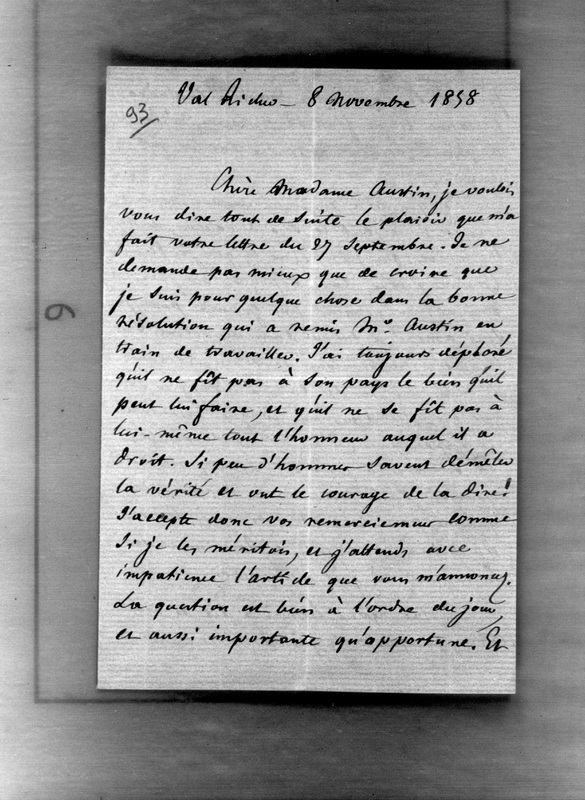 Val Richer — 8 Novembre 1858
93
Chère Madame Austin, je voulois
vous dire tout de suite le plaisir que m'a
fait votre lettre du 27 Septembre. Je ne
demande pas mieux que de croire que
je suis pour quelque chose dans la bonne
résolution qui a remis Mr. Austin en
train de travailler. J'ai toujours déploré
qu'il ne fît pas à son pays le bien qu'il
peut lui faire, et qu'il ne se fît pas à
lui-même tout l'honneur auquel il a
droit. Si peu d'hommes savent démêler
la vérité et ont le courage de la dire!
J'accepte donc vos remerciemens comme
si je les méritois, et j'attends avec
impatience l'article que vous m'annoncez.
La question est bien à l'ordre du jour,
et aussi importante qu'opportune. Et
6